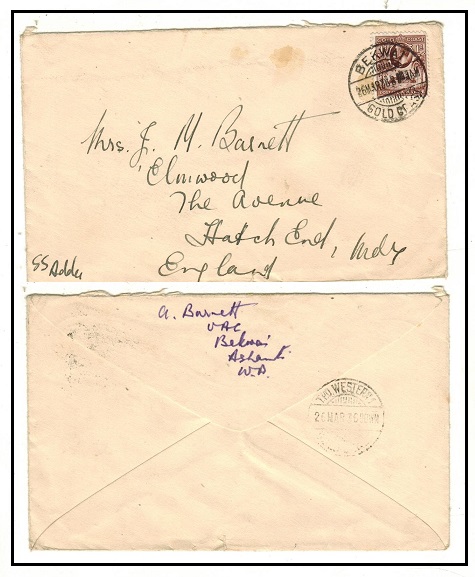 BEKWAI
26 MAR
GOLD COAST
Mrs. J. M. Barnett
'Elmwood
The Avenue
Hatch End, Mdx
England
SS Adda
A. Barnett
UAC
Bekwai
Ashanti
W.A.
T.P.O. WESTERN
26 MAR 35 DOWN